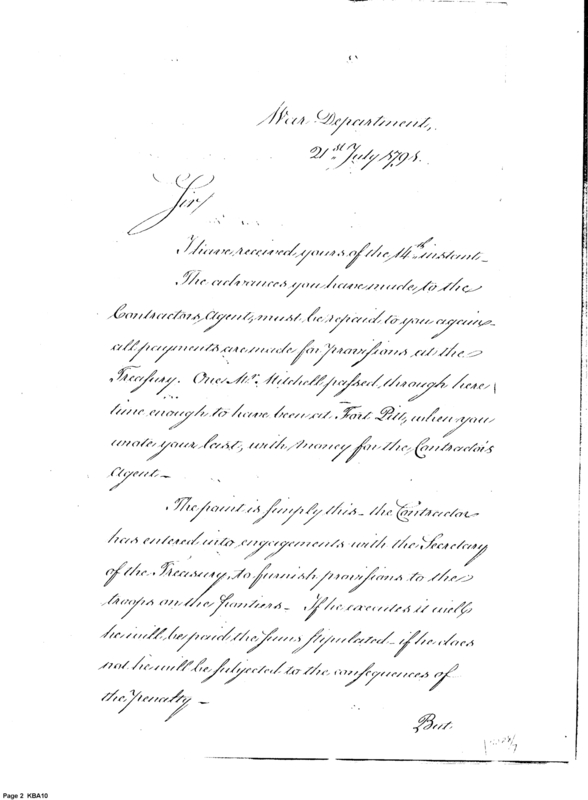 War Department,
21st July 1791.
Sir/
I have received yours of the 14th instant_
The advances you have made to the
Contractors Agent, must be repaid to you again_
all payments are made for provisions at the
Treasury. One Mr. Mitchell passed through here
time enough to have been at Fort Pitt, when you
wrote your last, with money for the Contractors
Agent_
The point is simply this_ the Contractor
has entered into engagements with the Secretary
of the Treasury, to furnish provisions to the
troops on the frontiers_ If he executes it well,
he will be paid the sums stipulated_ if he does
not he will be subjected to the consequences of
the Penalty_
But
Page 2 KBA10